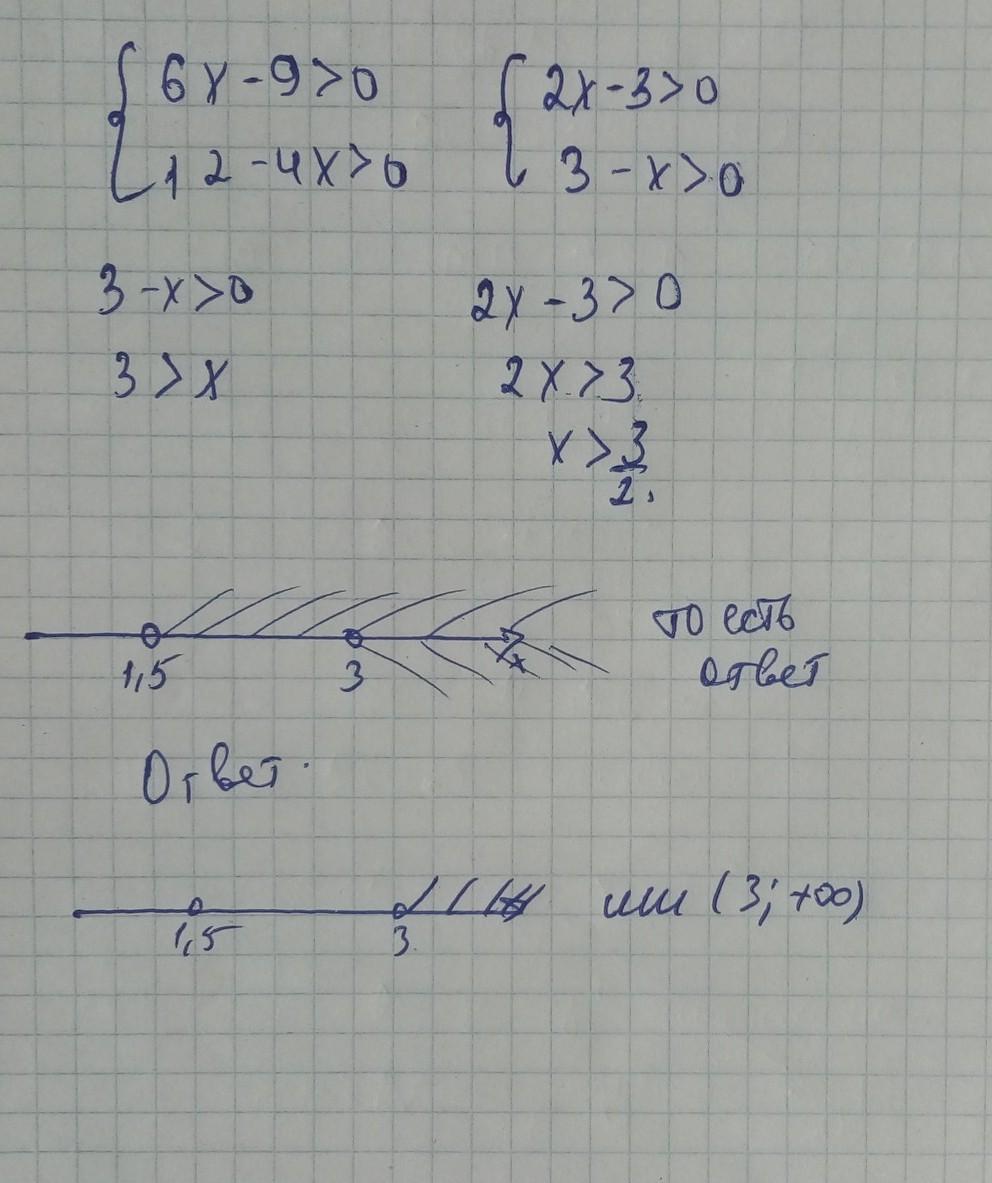 6x-9>0 2x-3>0
12-4x>0 3-x>0
3-x>0 2x-3>0
3>x 2x>3
x>3/2.
1,5 3 x то есть
ответ
Ответ.
1,5 3 или (3; +∞)